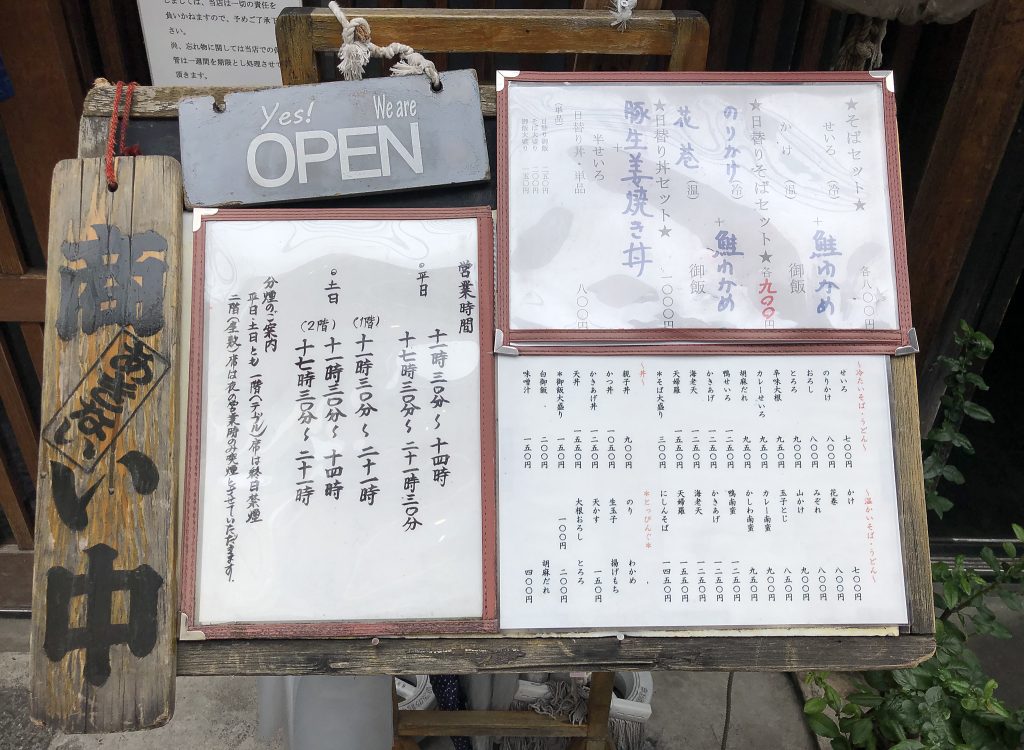 しましては、当店は一切の責任を
負いかねますので、予めご了承下
さい。
尚、忘れ物に関しては当店での保
管は一週間を期限とし処理させて
頂きます。
Yes! We are
OPEN
商い中
あきない
営業時間
◦平日
十一時三〇分〜十四時
十七時三〇分〜二十一時三〇分
◦土日
(1階) 十一時三〇分〜二十一時
(2階) 十一時三〇分〜十四時
十七時三〇分〜二十一時
分煙のご案内
平日・土日とも 一階(テーブル)席は終日禁煙
二階(座敷)席は夜の営業時のみ喫煙とさせていただきます.
★そばセット★ 各八〇〇円
せいろ(冷)
かけ(温)
+ 鮭わかめ御飯
★日替りそばセット★ 各九〇〇円
のりかけ(冷)
花巻(温)
+ 鮭わかめ御飯
★日替り丼セット★ 一〇〇〇円
豚生姜焼き丼
+
半せいろ
日替り丼・単品 八〇〇円
(単品)
日替り御飯 二五〇円
そば大盛り 三〇〇円
御飯大盛り 一五〇円
〜冷たいそば・うどん〜
せいろ 七〇〇円
のりかけ 八〇〇円
おろし 八〇〇円
とろろ 九〇〇円
辛味大根 九五〇円
カレーせいろ 九五〇円
胡麻だれ 九五〇円
鴨せいろ 一二五〇円
かきあげ 一二五〇円
海老天 一二五〇円
天婦羅 一五五〇円
*そば大盛り 三〇〇円
〜丼〜
親子丼 九〇〇円
かつ丼 一〇〇〇円
かきあげ丼 一二五〇円
天丼 一五五〇円
*御飯大盛り 一五〇円
白御飯 二〇〇円
味噌汁 一五〇円
〜温かいそば・うどん〜
かけ 七〇〇円
花巻 八〇〇円
みぞれ 八〇〇円
山かけ 九〇〇円
玉子とじ 八五〇円
カレー南蛮 九〇〇円
かしわ南蛮 九五〇円
鴨南蛮 一二五〇円
かきあげ 一二五〇円
海老天 一二五〇円
天婦羅 一五五〇円
にしんそば 一四五〇円
*とっぴんぐ*
のり わかめ
生玉子 揚げもち
天かす 一五〇円
大根おろし とろろ
二〇〇円
一〇〇円
胡麻だれ
四〇〇円